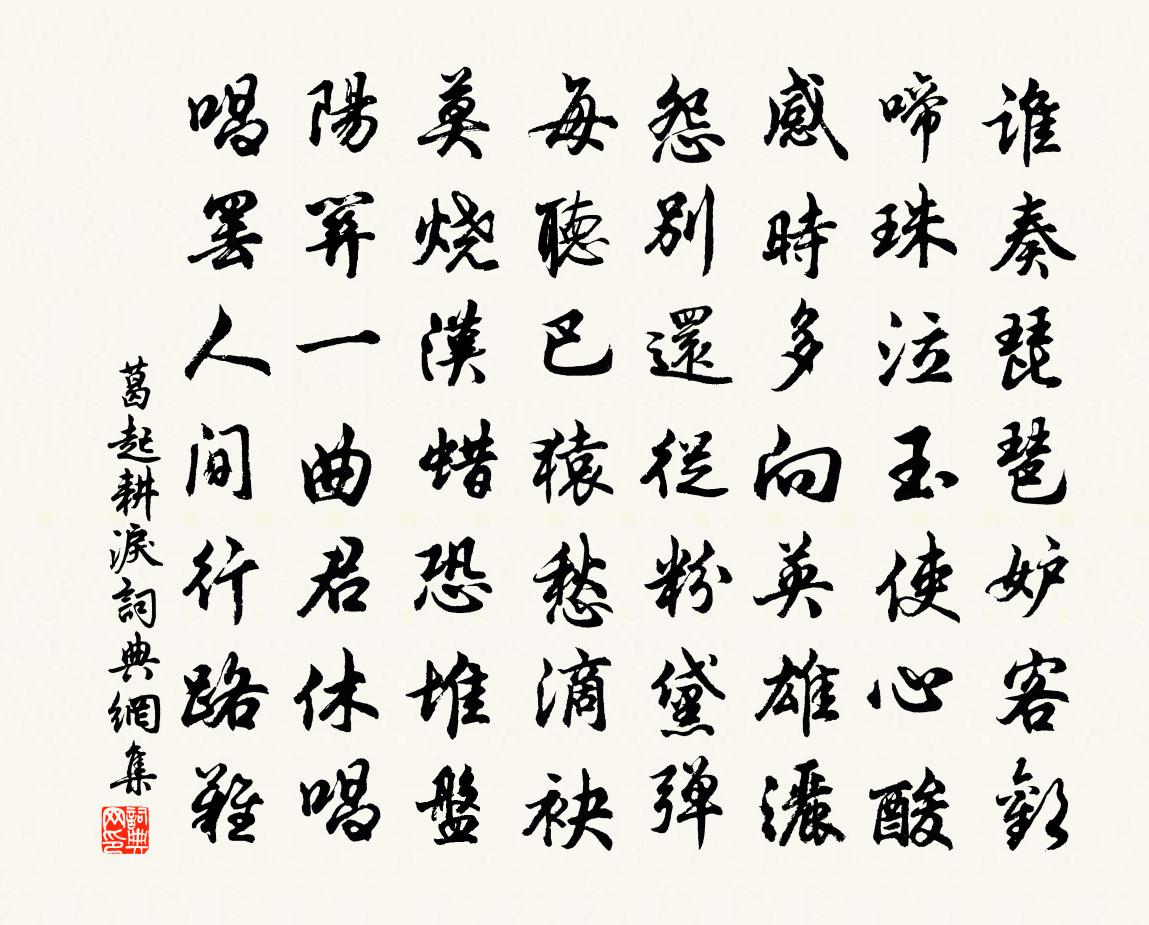 谁奏琵琶妒客歡
啼珠泣玉使心酸
感時多向英雄灑
怨别還從粉黛弹
每聽巴猿愁滴袂
莫烧漢蜡恐堆盤
陽關一曲君休唱
唱罢人间行路難
葛起耕淚詞典網集
詞典网印